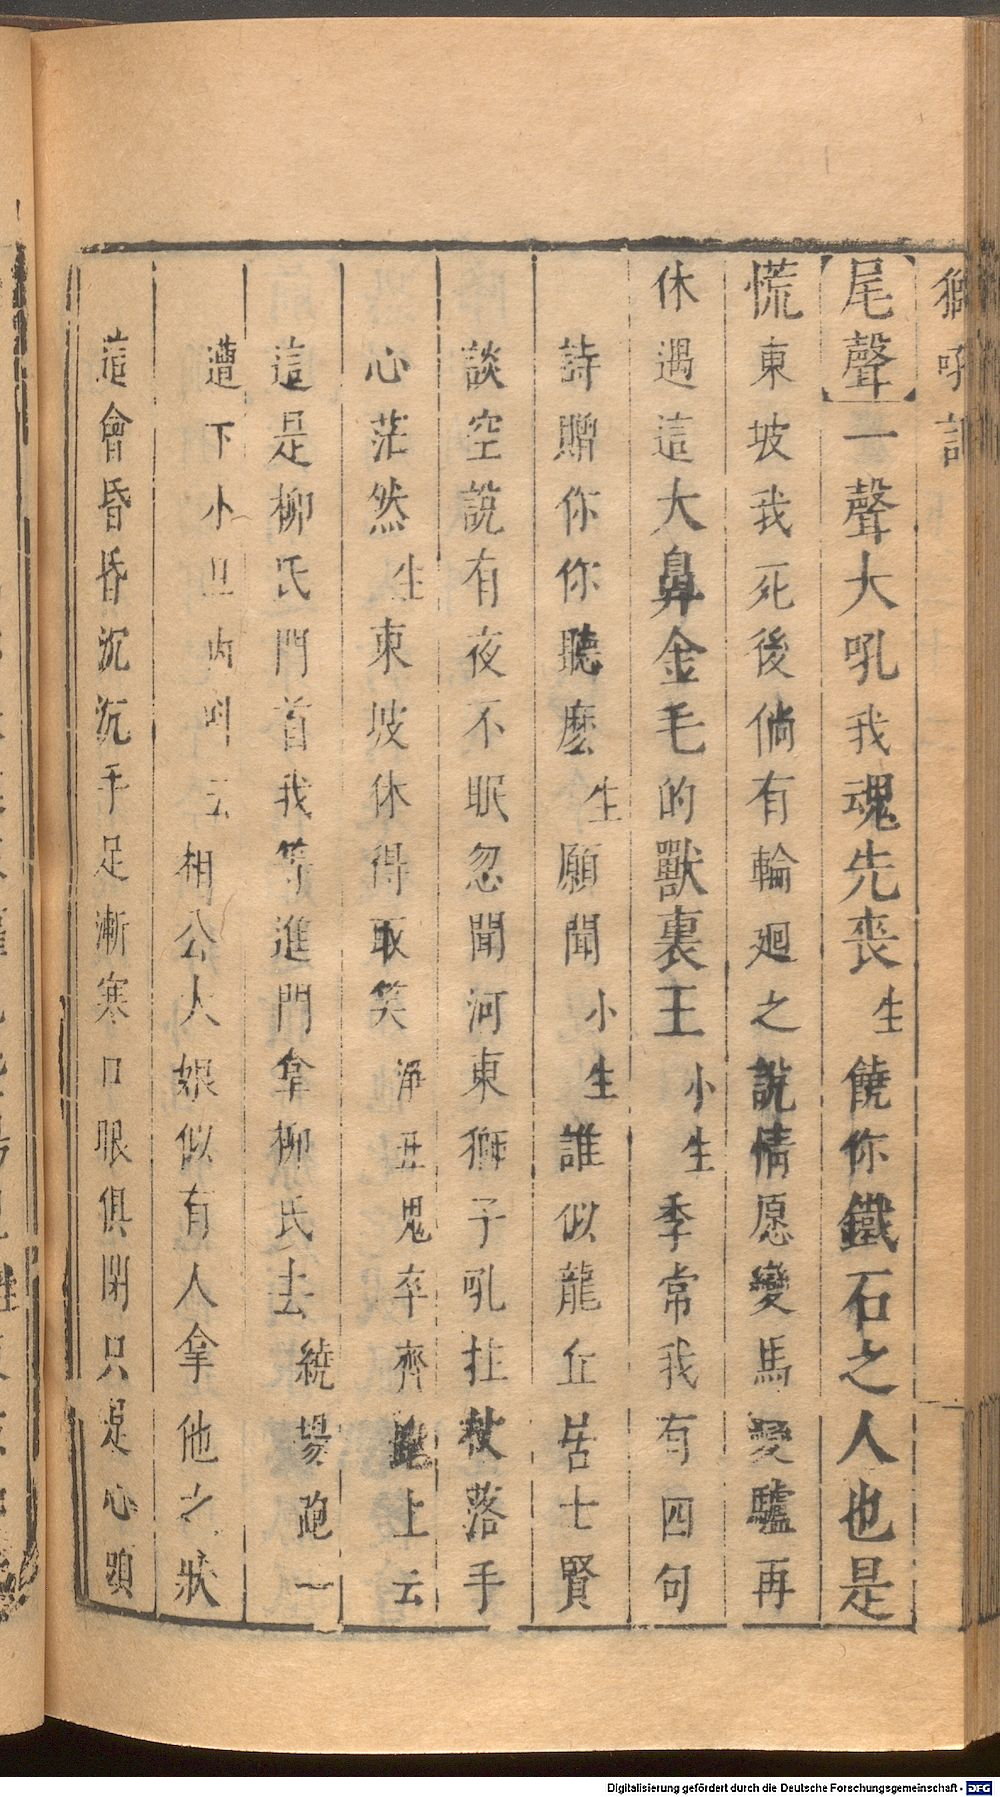 獅吼記
【尾聲】一聲大吼我魂先喪生饒你鐵石之人也是
慌東坡我死後倘有輪廻之說情愿變馬變驢再
休遇這大鼻金毛的獸裏王小生季常我有四句
詩贈你你聽麽生願聞小生誰似龍丘居士賢
談空說有夜不眠忽聞河東獅子吼拄杖落手
心茫然生東坡休得取笑淨丑鬼卒齊跑上云
這是柳氏門首我等進門拿柳氏去繞場跑一
遭下小旦內叫云相公大娘似有人拿他之狀
這會昏昏沉沉手足漸寒口眼俱閉只是心頭
Digitalisierung gefördert durch die Deutsche Forschungsgemeinschaft - DFG